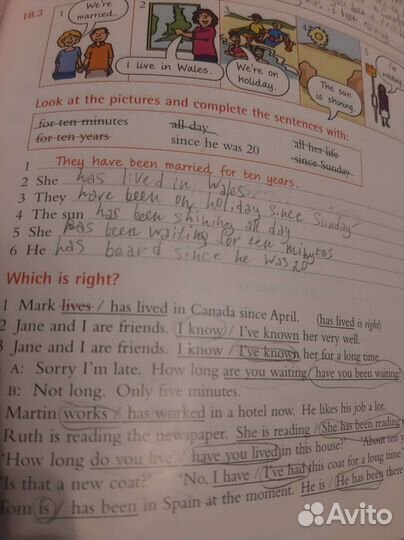 18.3
1 We're married.
2 I live in Wales.
3 We're on holiday.
4 The sun is shining.
5 I'm waiting
Look at the pictures and complete the sentences with:
for ten minutes all day all her life
for ten years since he was 20 since Sunday
1 They have been married for ten years.
2 She has lived in Wales
3 They have been on holiday since Sunday
4 The sun has been shining all day
5 She has been waiting for ten minytes
6 He has beard since he was 20
Which is right?
1 Mark lives / has lived in Canada since April. (has lived is right)
2 Jane and I are friends. I know / I've known her very well.
3 Jane and I are friends. I know / I've known her for a long time.
A: Sorry I'm late. How long are you waiting / have you been waiting?
B: Not long. Only five minutes.
Martin works / has worked in a hotel now. He likes his job a lot.
Ruth is reading the newspaper. She is reading / She has been reading
'How long do you live / have you lived in this house?' 'About ten
'Is that a new coat?' 'No, I have / I've had this coat for a long time.'
Tom is / has been in Spain at the moment. He is / He has been there
Avito